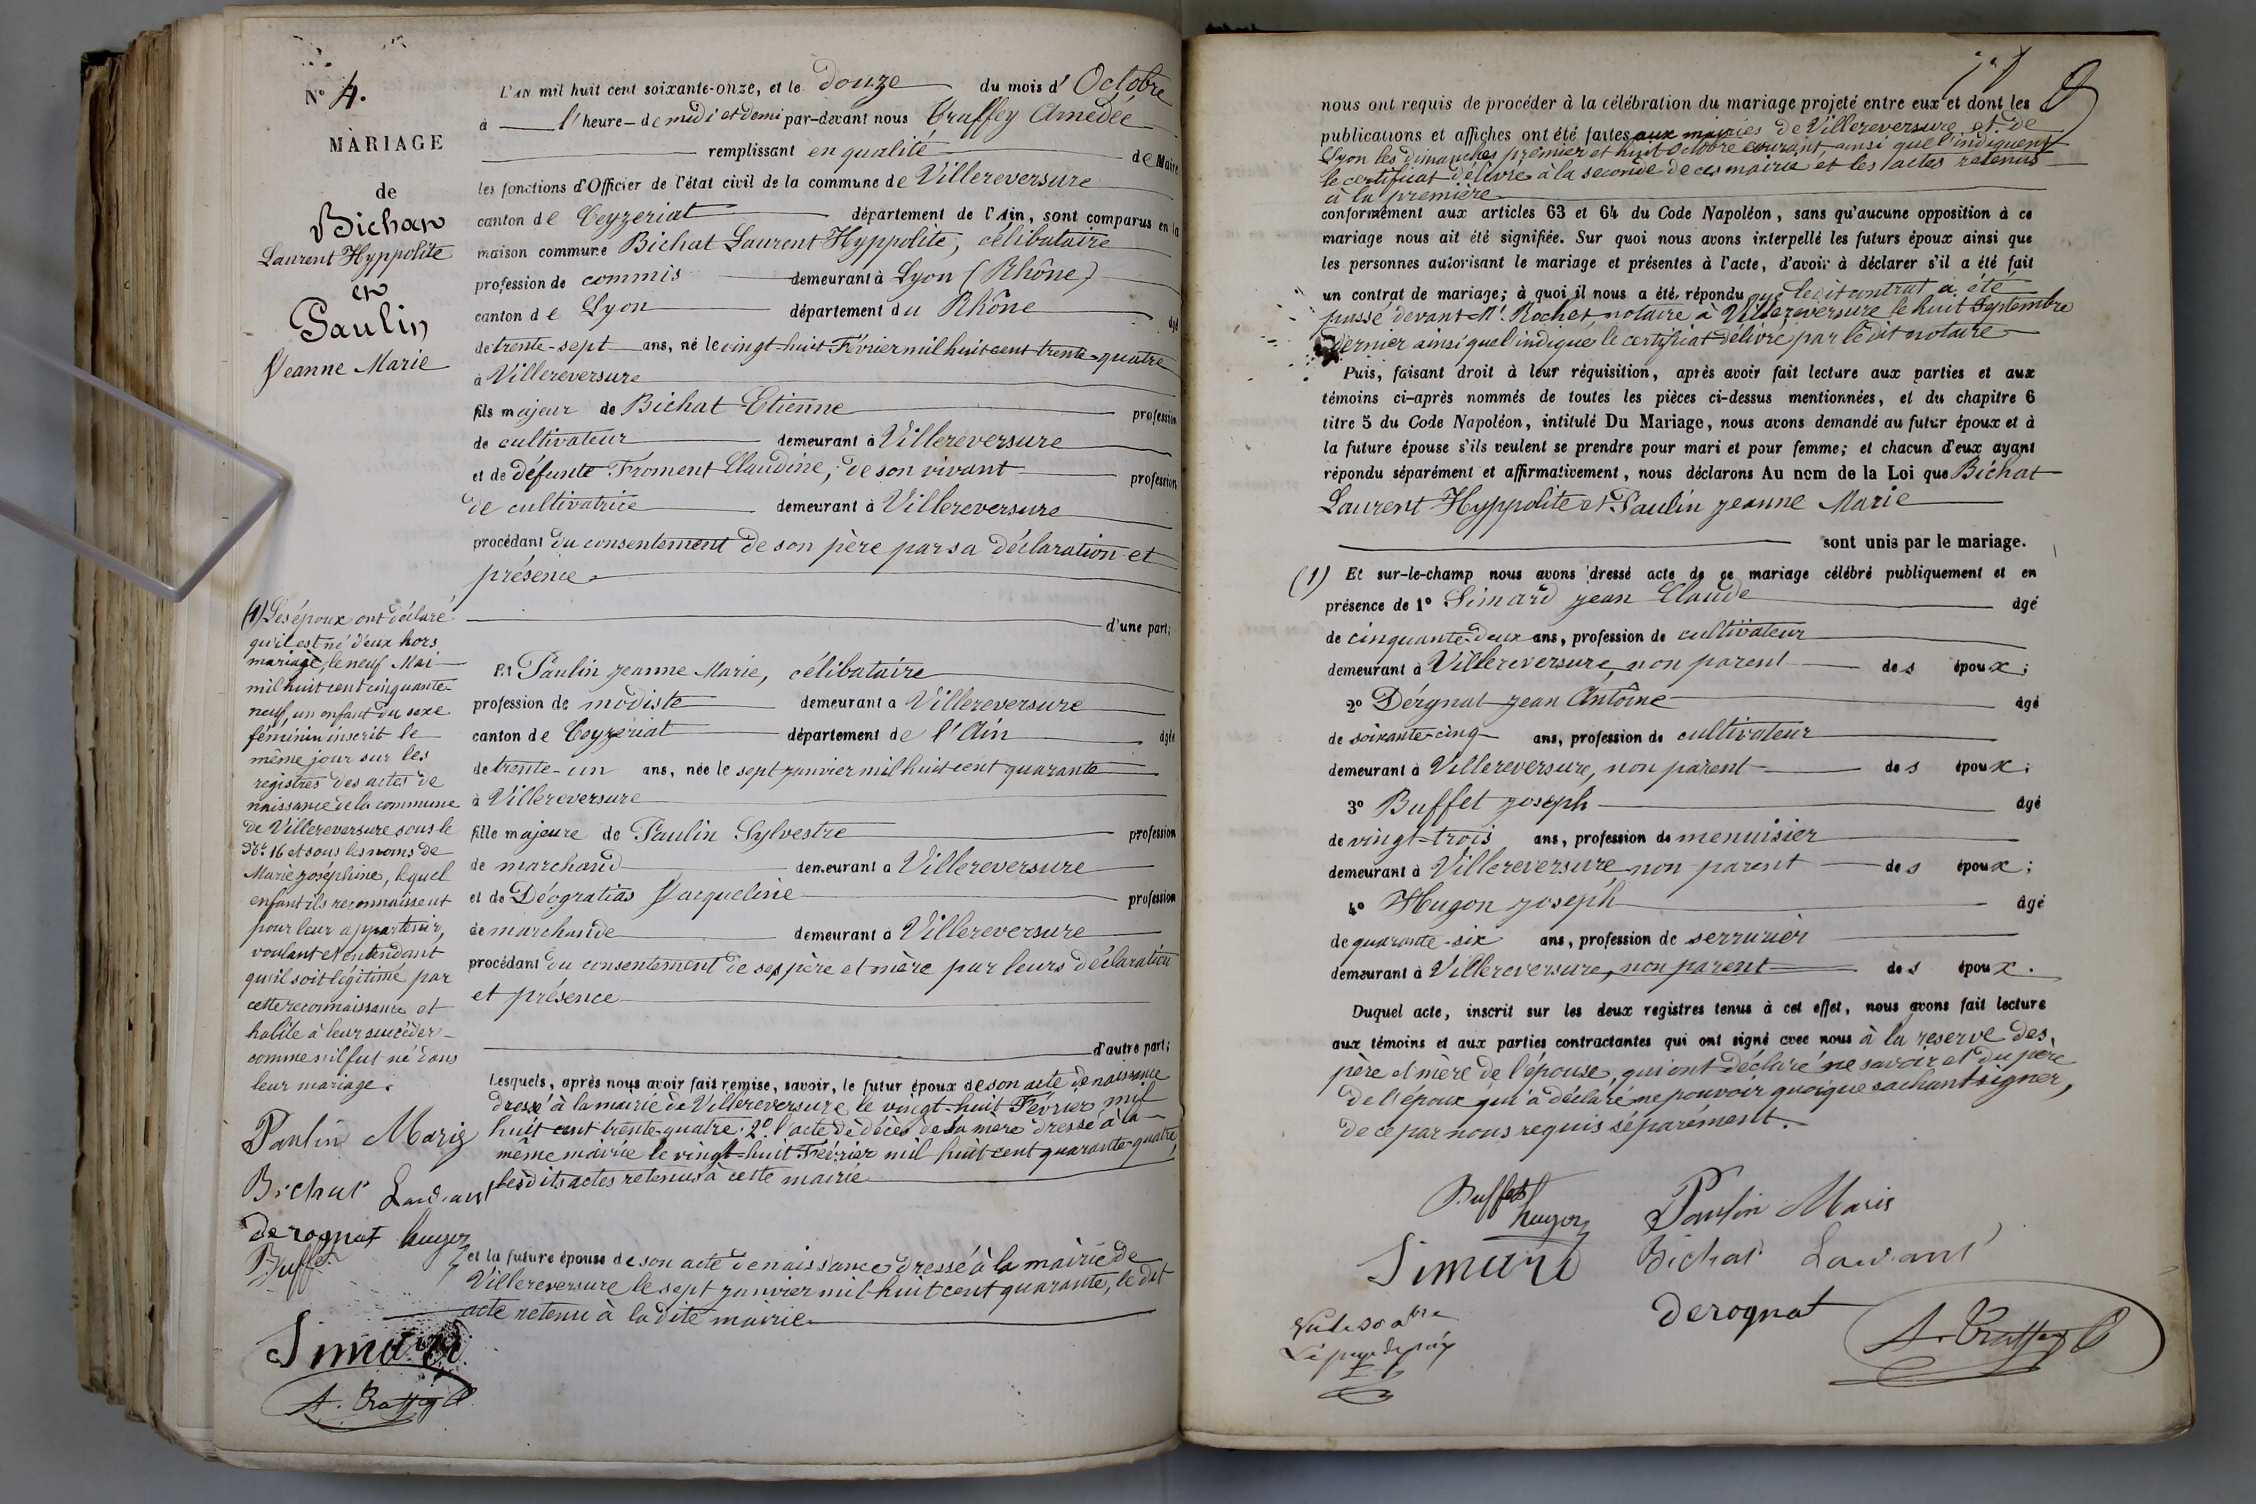 N° 4.
MARIAGE
de
Bichat
Laurent Hyppolite
et
Paulin
Jeanne Marie
L'AN mil huit cent soixante-onze, et le douze du mois d'Octobre
à l'heure de midi et demi par-devant nous Truffey Amédée
remplissant en qualité de Maire
les fonctions d'Officier de l'état civil de la commune de Villereversure
canton de Ceyzeriat département de l'Ain, sont comparus en la
maison commune Bichat Laurent Hyppolite, célibataire
profession de commis demeurant à Lyon (Rhône)
canton de Lyon département du Rhône âgé
de trente-sept ans, né le vingt-huit Février mil huit cent trente-quatre
à Villereversure
fils majeur de Bichat Etienne profession
de cultivateur demeurant à Villereversure
et de défunte Froment Claudine, de son vivant profession
de cultivatrice demeurant à Villereversure
procédant du consentement de son père par sa déclaration et
présence
d'une part;
Et Paulin jeanne Marie, célibataire
profession de modiste demeurant à Villereversure
canton de Ceyzériat département de l'Ain âgée
de trente-un ans, née le sept janvier mil huit cent quarante
à Villereversure
fille majeure de Paulin Sylvestre profession
de marchand demeurant à Villereversure
et de Déogratias Jacqueline profession
de marchande demeurant à Villereversure
procédant du consentement de ses père et mère par leurs déclaration
et présence
d'autre part;
Lesquels, après nous avoir fait remise, savoir, le futur époux de son acte de naissance
dressé à la mairie de Villereversure le vingt-huit Février mil
huit cent trente-quatre; 2° l'acte de décès de sa mère dressé à la
même mairie le vingt-huit Février mil huit cent quarante-quatre,
lesdits actes retenus à cette mairie
et la future épouse de son acte de naissance dressé à la mairie de
Villereversure le sept janvier mil huit cent quarante, le dit
acte retenu à la dite mairie
(1) Les époux ont déclaré
qu'il est né d'eux hors
mariage, le neuf Mai
mil huit cent cinquante-
neuf, un enfant du sexe
féminin inscrit le
même jour sur les
registres des actes de
naissance de la commune
de Villereversure sous le
N° 16 et sous les noms de
Marie joséphine, lequel
enfant ils reconnaissent
pour leur appartenir,
voulant et entendant
qu'il soit légitimé par
cette reconnaissance et
habile à leur succéder
comme s'il fut né dans
leur mariage.
Paulin Marie
Bichat Laurant
derognat hugon
Buffet
Simard
A. Truffey
nous ont requis de procéder à la célébration du mariage projeté entre eux et dont les
publications et affiches ont été faites aux mairies de Villereversure et de
Lyon les dimanches premier et huit Octobre courant ainsi que l'indiquent
le certificat délivré à la seconde de ces mairie et les actes retenus
à la première
conformément aux articles 63 et 64 du Code Napoléon, sans qu'aucune opposition à ce
mariage nous ait été signifiée. Sur quoi nous avons interpellé les futurs époux ainsi que
les personnes autorisant le mariage et présentes à l'acte, d'avoir à déclarer s'il a été fait
un contrat de mariage; à quoi il nous a été répondu que ledit contrat a été
passé devant Me Rochet notaire à Villereversure le huit Septembre
dernier ainsi que l'indique le certificat délivré par le dit notaire
Puis, faisant droit à leur réquisition, après avoir fait lecture aux parties et aux
témoins ci-après nommés de toutes les pièces ci-dessus mentionnées, et du chapitre 6
titre 5 du Code Napoléon, intitulé Du Mariage, nous avons demandé au futur époux et à
la future épouse s'ils veulent se prendre pour mari et pour femme; et chacun d'eux ayant
répondu séparément et affirmativement, nous déclarons Au nom de la Loi que Bichat
Laurent Hyppolite et Paulin jeanne Marie
sont unis par le mariage.
(1) Et sur-le-champ nous avons dressé acte de ce mariage célébré publiquement et en
présence de 1° Simard jean Claude âgé
de cinquante-deux ans, profession de cultivateur
demeurant à Villereversure, non parent des époux;
2° Dérgnat jean Antoine âgé
de soixante-cinq ans, profession de cultivateur
demeurant à Villereversure, non parent des époux;
3° Buffet joseph âgé
de vingt-trois ans, profession de menuisier
demeurant à Villereversure non parent des époux;
4° Hugon joseph âgé
de quarante-six ans, profession de serrurier
demeurant à Villereversure, non parent des époux.
Duquel acte, inscrit sur les deux registres tenus à cet effet, nous avons fait lecture
aux témoins et aux parties contractantes qui ont signé avec nous à la reserve des
père et mère de l'épouse, qui ont déclaré ne savoir et du père
de l'époux qui a déclaré ne pouvoir quoique sachant signer,
de ce par nous requis séparément.
Buffet
hugon Paulin Marie
Simard Bichat Laurant
derognat
A. Truffey